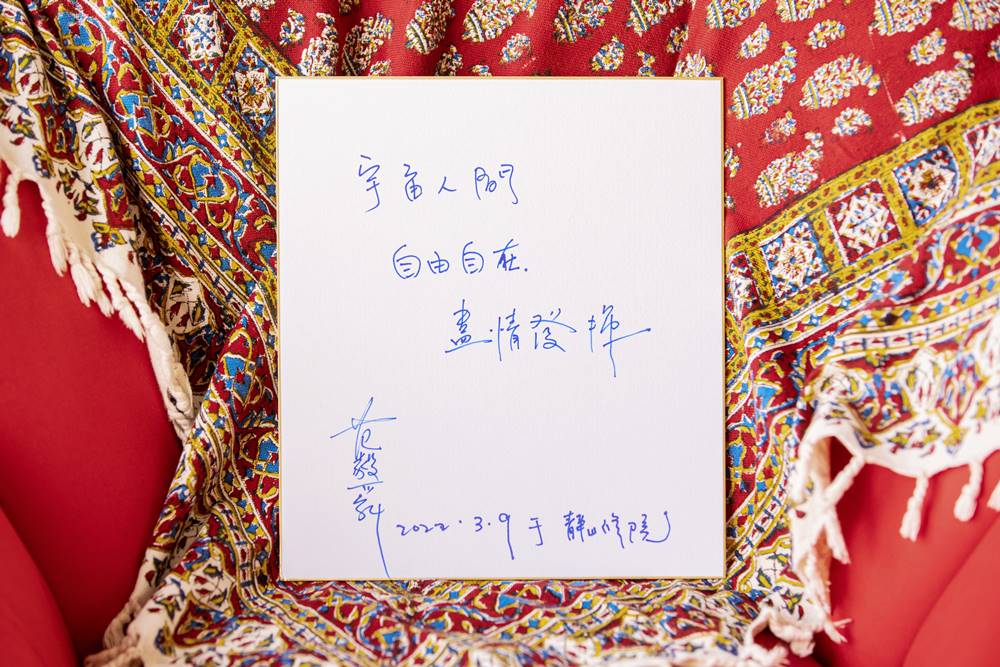 宇宙人間
自由自在.
盡情發揮
范毅舜
2022.3.9 于 靜山修院